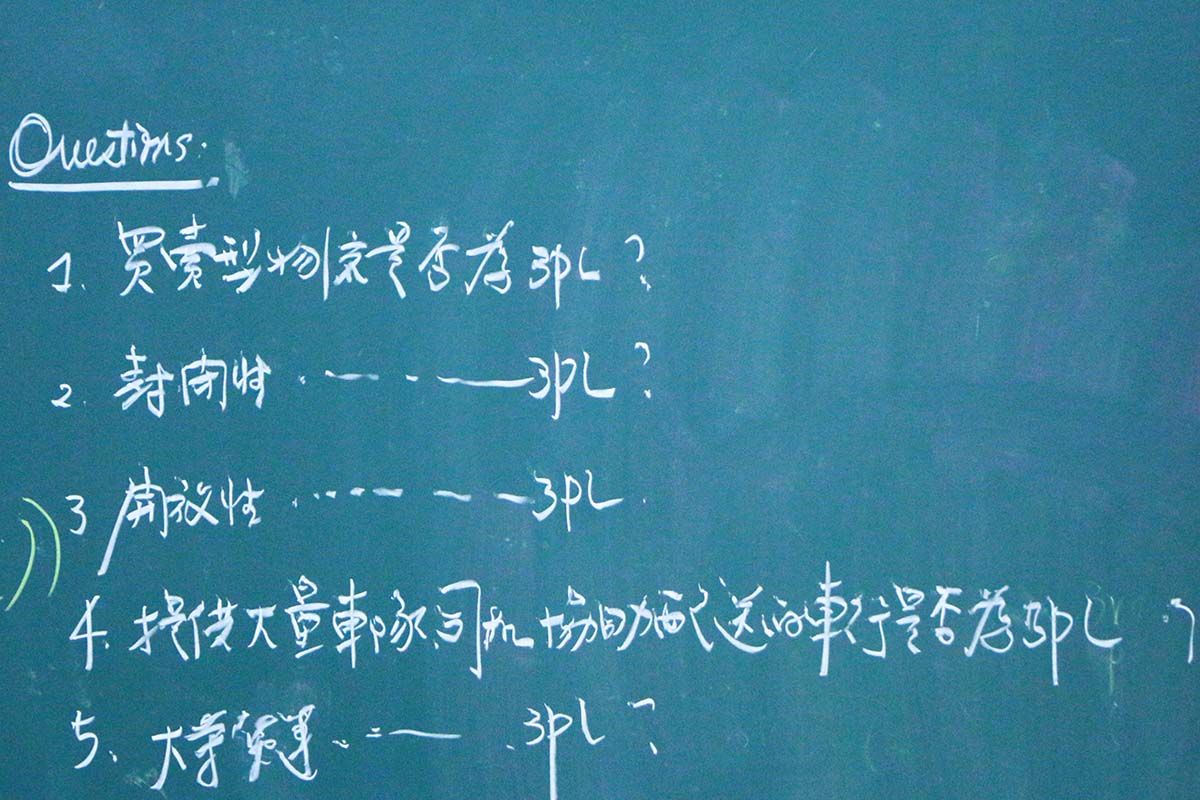 Questions.
1. 買賣型物流是否為 3PL?
2. 封閉性 ‥— - —— 3PL?
3 開放性 ……--- 3PL.
4. 提供大量車隊司机協助配送的車行是否為3PL?
5. 大榮貨運 ..=— .3PL?